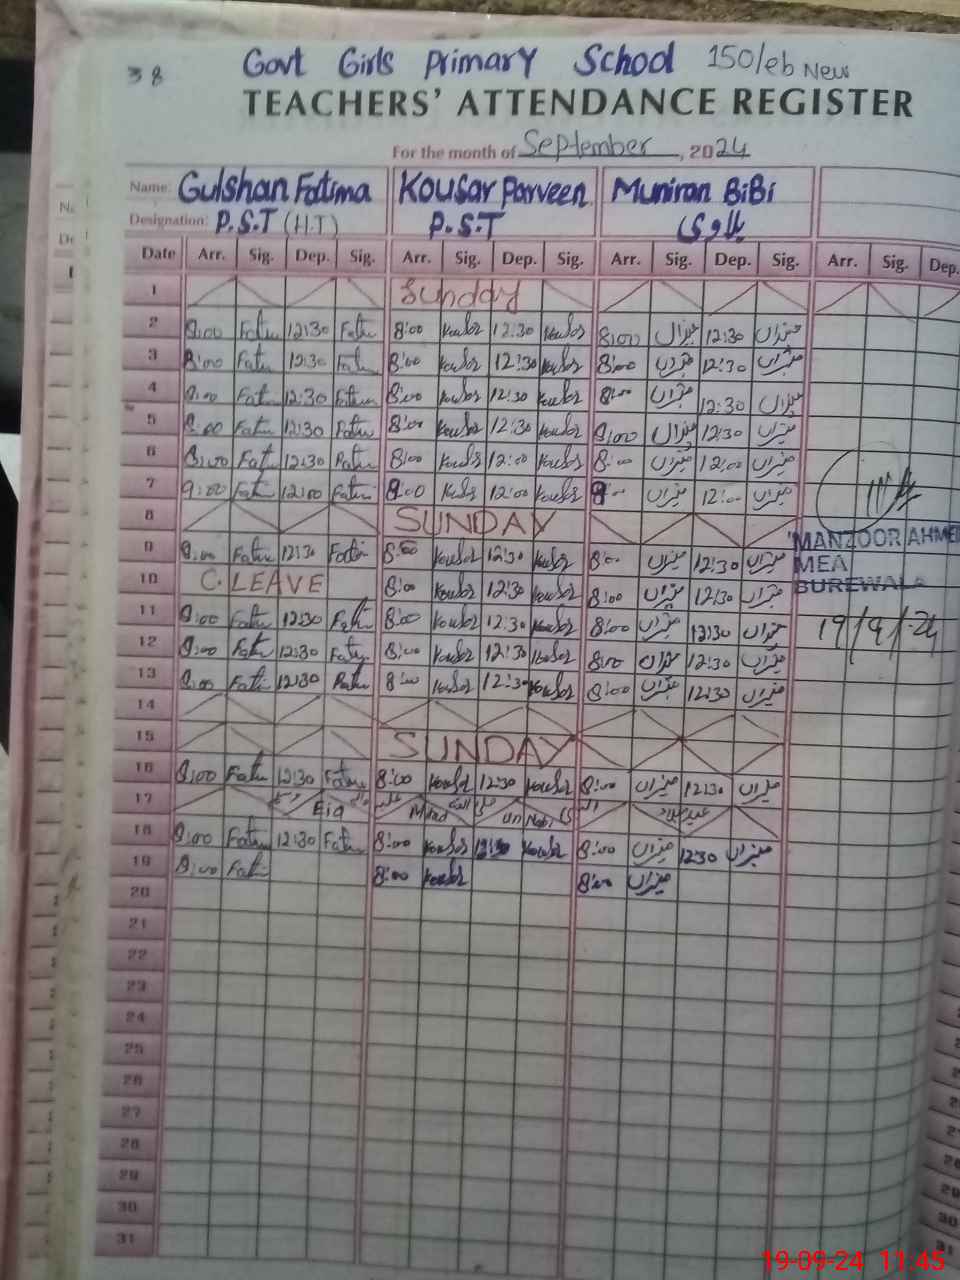 38
Govt Girls Primary School 150/eb New
TEACHERS' ATTENDANCE REGISTER
For the month of September, 2024
Name: Gulshan Fatima Kousar Parveen Muniran BiBi
Designation: P.S.T (H.T) P.S.T بلاوی
Date Arr. Sig. Dep. Sig. Arr. Sig. Dep. Sig. Arr. Sig. Dep. Sig. Arr. Sig. Dep.
1 Sunday
2 8:00 12:30 8:00 Kousar 12:30 Kousar 8:00 منیراں 12:30 منیراں
3 8:00 12:30 8:00 Kousar 12:30 Kousar 8:00 منیراں 12:30 منیراں
4 8:00 12:30 8:00 Kousar 12:30 Kousar 8:00 منیراں 12:30 منیراں
5 8:00 12:30 8:00 Kousar 12:30 Kousar 8:00 منیراں 12:30 منیراں
6 8:00 12:30 8:00 Kousar 12:00 Kousar 8:00 منیراں 12:00 منیراں
7 12:00 12:00 Kousar منیراں 12:00 منیراں
8 SUNDAY
MANZOOR AHME
9 8:00 12:30 8:00 Kousar 12:30 Kousar 8:00 منیراں 12:30 منیراں
MEA
10 C. LEAVE 8:00 Kousar 12:30 Kousar 8:00 منیراں 12:30 منیراں
BUREWALA
11 8:00 12:30 8:00 Kousar 12:30 Kousar 8:00 منیراں 12:30 منیراں
19/9/-24
12 8:00 12:30 8:00 Kousar 12:30 Kousar 8:00 منیراں 12:30 منیراں
13 8:00 12:30 8:00 Kousar 12:30 Kousar 8:00 منیراں 12:30 منیراں
14
15 SUNDAY
16 8:00 12:30 8:00 Kousar 12:30 Kousar 8:00 منیراں 12:30 منیراں
17 Eid Milad un Nabi عید میلاد
18 8:00 12:30 8:00 Kousar 12:30 Kousar 8:00 منیراں 12:30 منیراں
19 8:00 8:00 Kousar 8:00 منیراں
20
21
22
23
24
25
26
27
28
29
30
31
19-09-24 11:45